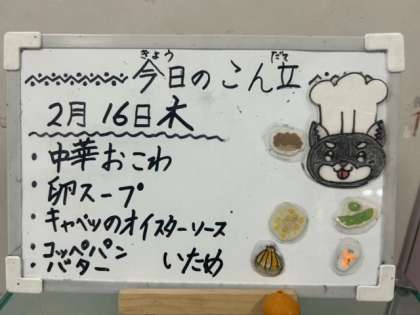 きょう だて
今日のこん立
2月16日木
・中華おこわ
・卵スープ
・キャベツのオイスターソース
いため
・コッペパン
バター